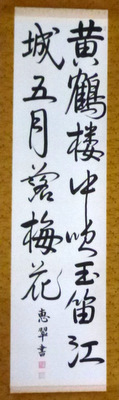 黄鶴楼中吹玉笛江
城五月落梅花
惠翠書